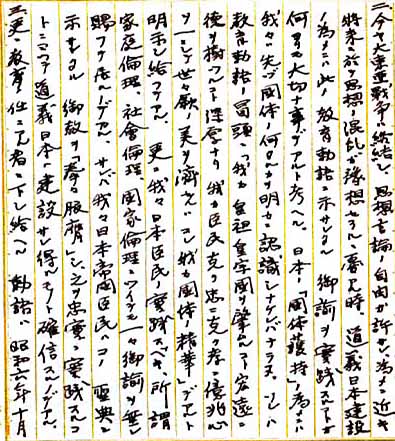 二、今ヤ大東亜戰爭ハ終結シ、思想言論ノ自由ガ許サレ爲メニ近キ
將來ニ於テ思想ノ混乱ガ豫想セラルル憂ヒノ時、道義日本建設
ノ爲メニハ此ノ教育勅語ニ示サレタル御諭ヲ實踐スルコトガ
何ヨリ大切ナ事デアルト考ヘル。日本ノ「國体護持」ノ爲メニハ
我々ハ先ヅ國体ノ何モノカヲ明カニ認識シナケレバナラヌ。ソレハ
教育勅語ノ冒頭ニ「我カ皇祖皇宗國ヲ肇ムルコト宏遠ニ
德ヲ樹ツルコト深厚ナリ我カ臣民克ク忠ニ克ク孝ニ億兆心
ヲ一ニシテ世々厥ノ美ヲ濟セルハ此レ我カ國体ノ精華」デアルト
明示シ給フテアル。更ニ我々日本臣民ノ實踐スベキ所謂
家庭倫理、社會倫理、國家倫理ニツイテ一々御諭ヲ
賜フテ居ルノデアル。サレバ我々日本帝國臣民ハコノ聖典ニ
示サレタル御教ヲ拳々服膺シ、之ヲ忠實ニ實踐スルコ
トニヨツテ道義日本ノ建設ガサレ得ルモノト確信スルノデアル。
三、更ニ教育ニ任ズル者ニ下シ給ヘル勅語ハ昭和六年十月